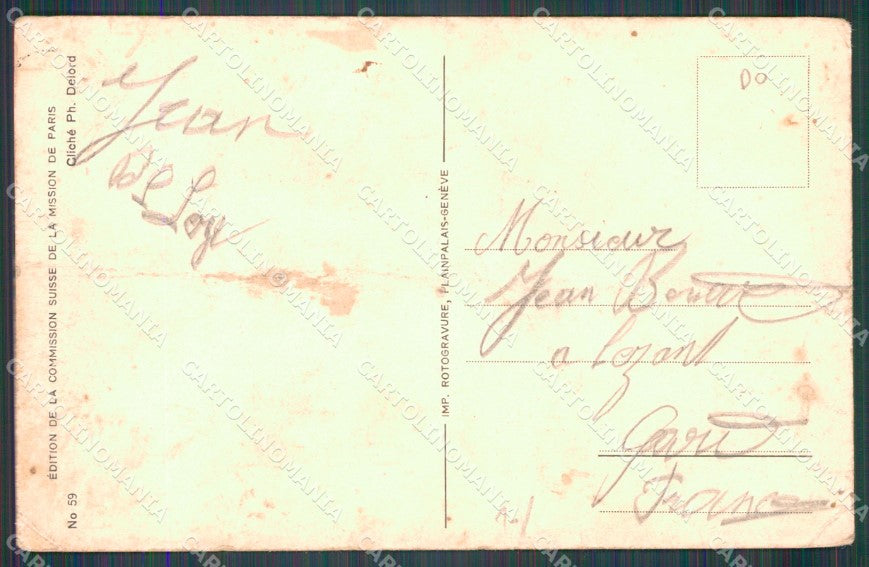 ÉDITION DE LA COMMISSION SUISSE DE LA MISSION DE PARIS
Cliché Ph. Delord
No 59
Jean
IMP. ROTOGRAVURE, PLAINPALAIS-GENÈVE
DO
Monsieur
Jean
a lozant
Gard
France
CARTOLINOMANIA